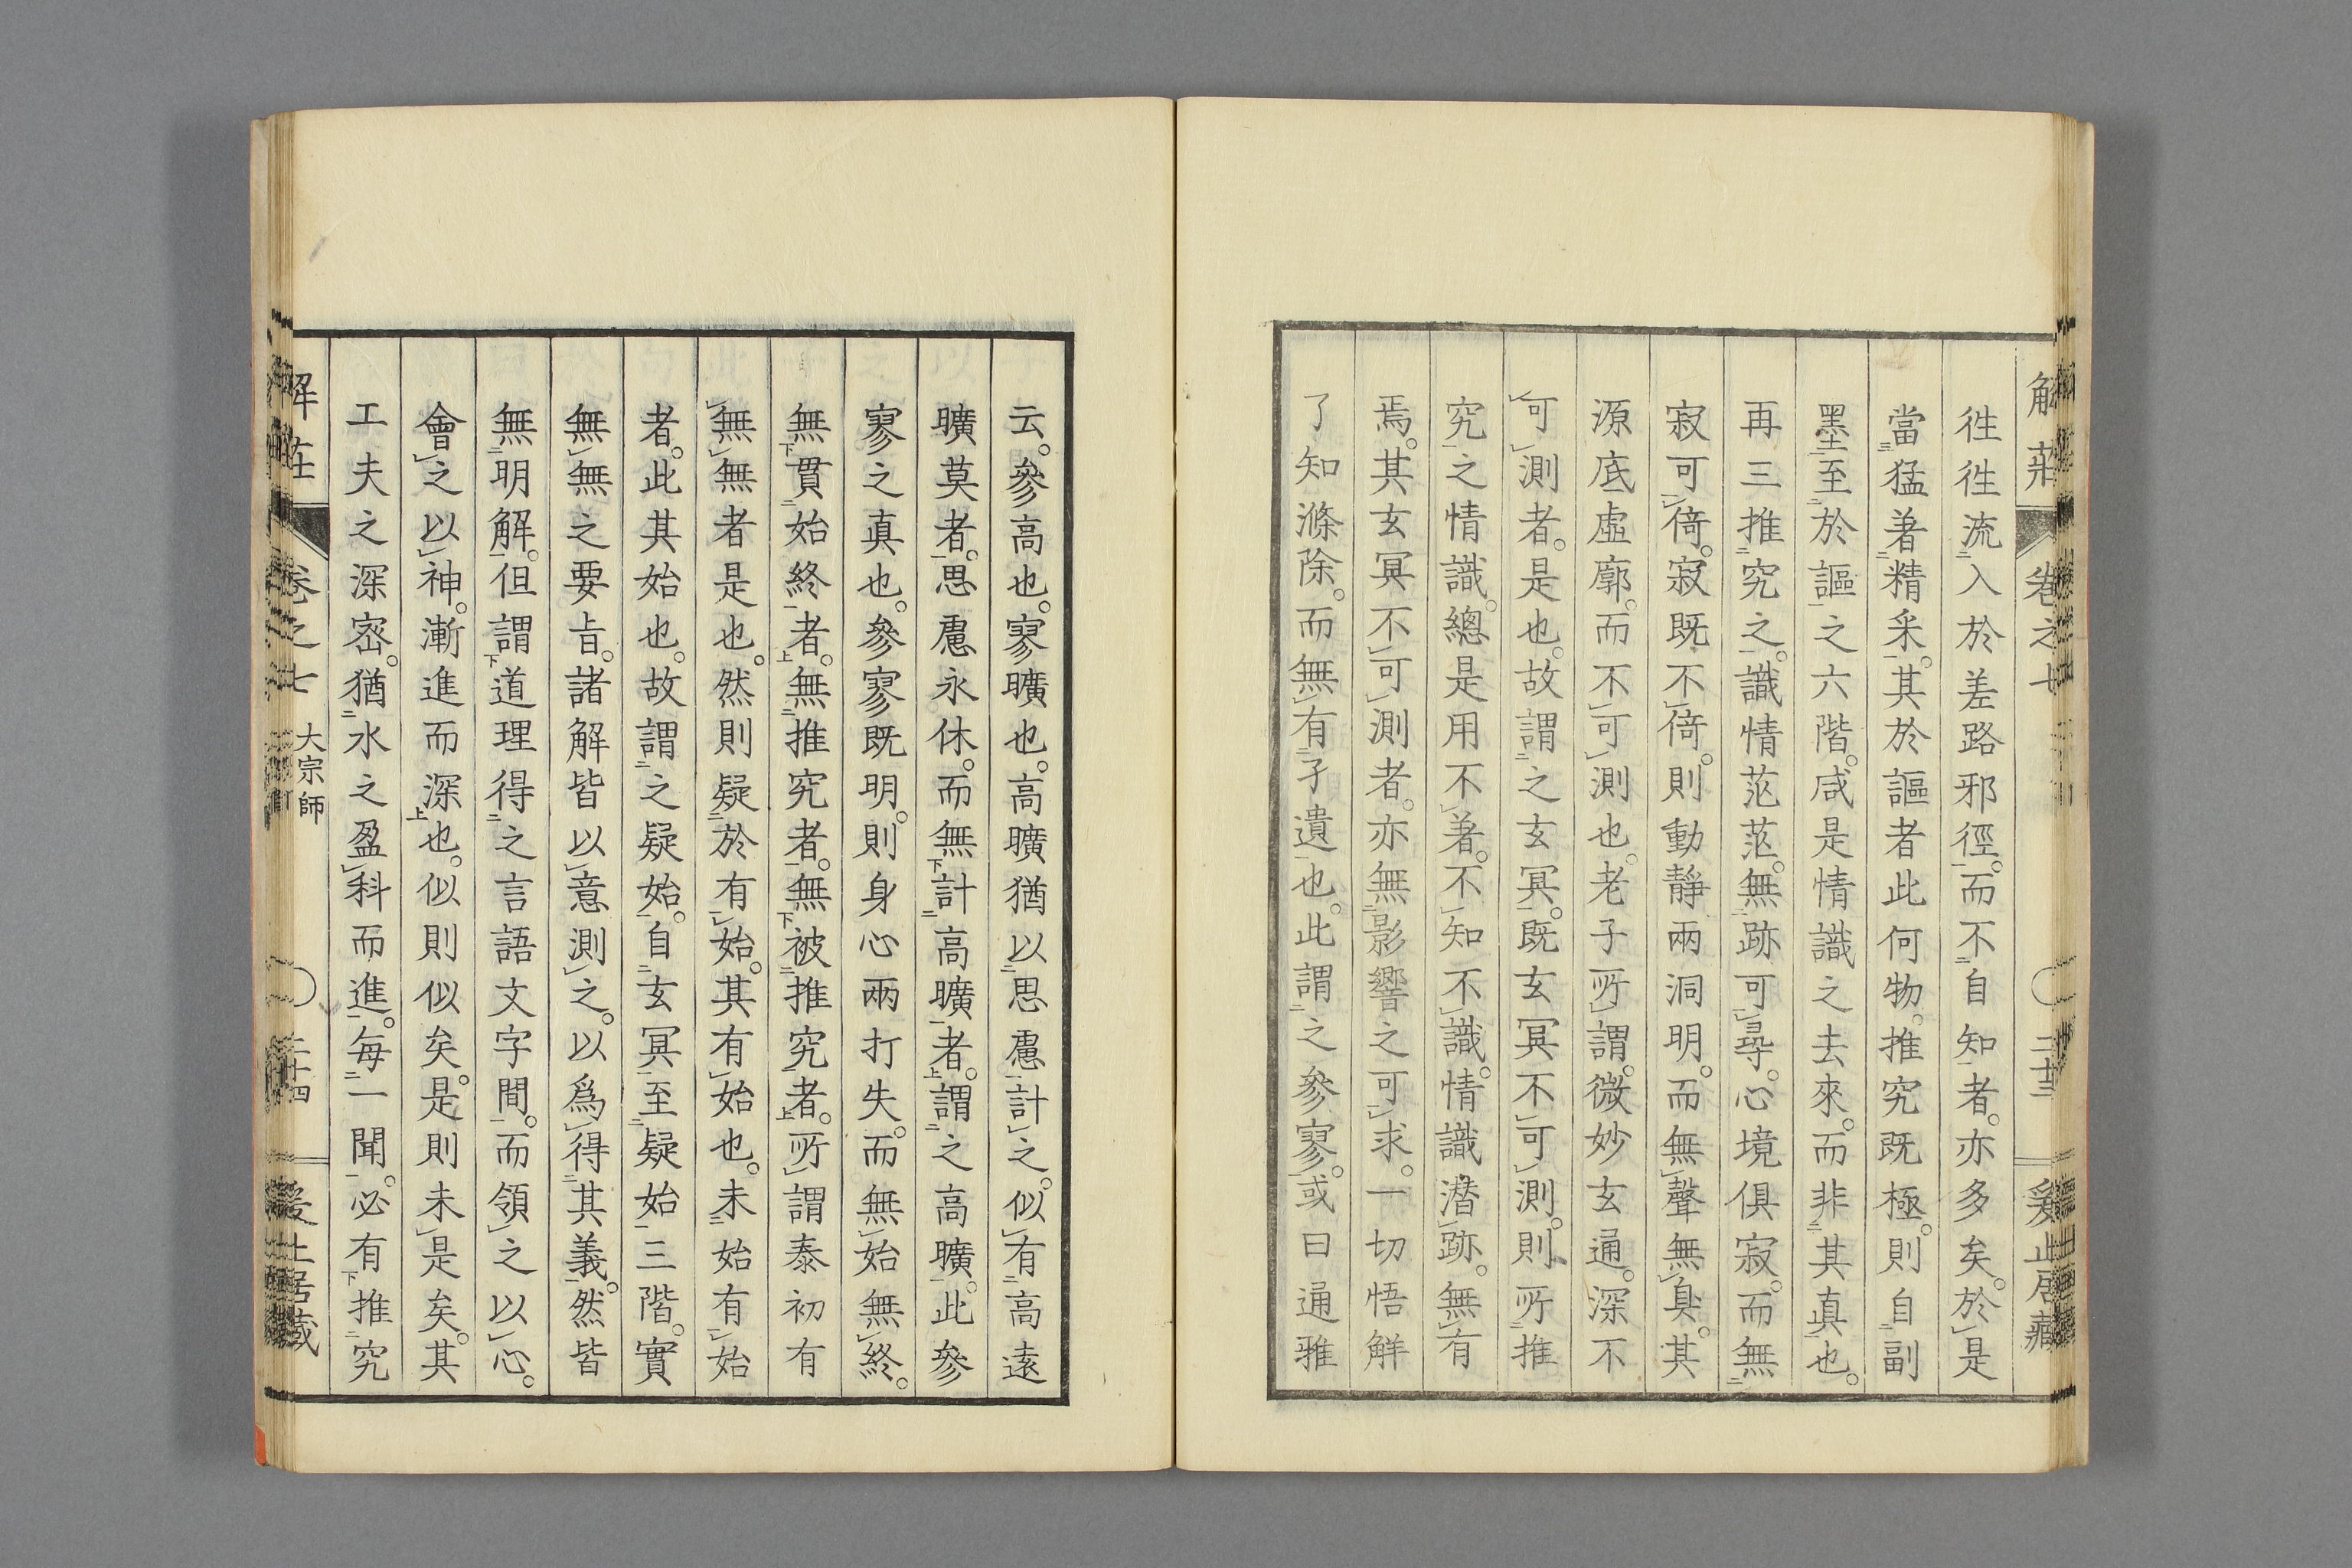 解莊 卷之七 二十三 爰止居藏
徃徃流入於差路邪徑。而不自知者。亦多矣。於是
當猛著精采。其於謳者此何物。推究既極。則自副
墨至於謳之六階。咸是情識之去來。而非其真也。
再三推究之。識情茫茫。無跡可尋。心境俱寂。而無
寂可倚。寂既不倚。則動靜兩洞明。而無聲無臭。其
源底虛廓。而不可測也。老子所謂。微妙玄通。深不
可測者。是也。故謂之玄冥。既玄冥不可測。則所推
究之情識。總是用不著。不知不識。情識潛跡。無有
焉。其玄冥不可測者。亦無影響之可求。一切悟解
了知滌除。而無有孑遺也。此謂之參寥。或曰通雅
云。參高也。寥曠也。高曠猶以思慮計之。似有高遠
曠莫者。思慮永休。而無計高曠者。謂之高曠。此參
寥之真也。參寥既明。則身心兩打失。而無始無終。
無貫始終者。無推究者。無被推究者。所謂泰初有
無無者是也。然則疑於有始。其有始也。未始有始
者。此其始也。故謂之疑始。自玄冥至疑始三階。實
無無之要旨。諸解皆以意測之。以爲得其義。然皆
無明解。但謂道理得之言語文字間。而領之以心。
會之以神。漸進而深也。似則似矣。是則未是矣。其
工夫之深密。猶水之盈科而進。每一聞。必有推究
解莊 卷之七 大宗師 二十四 爰止居藏